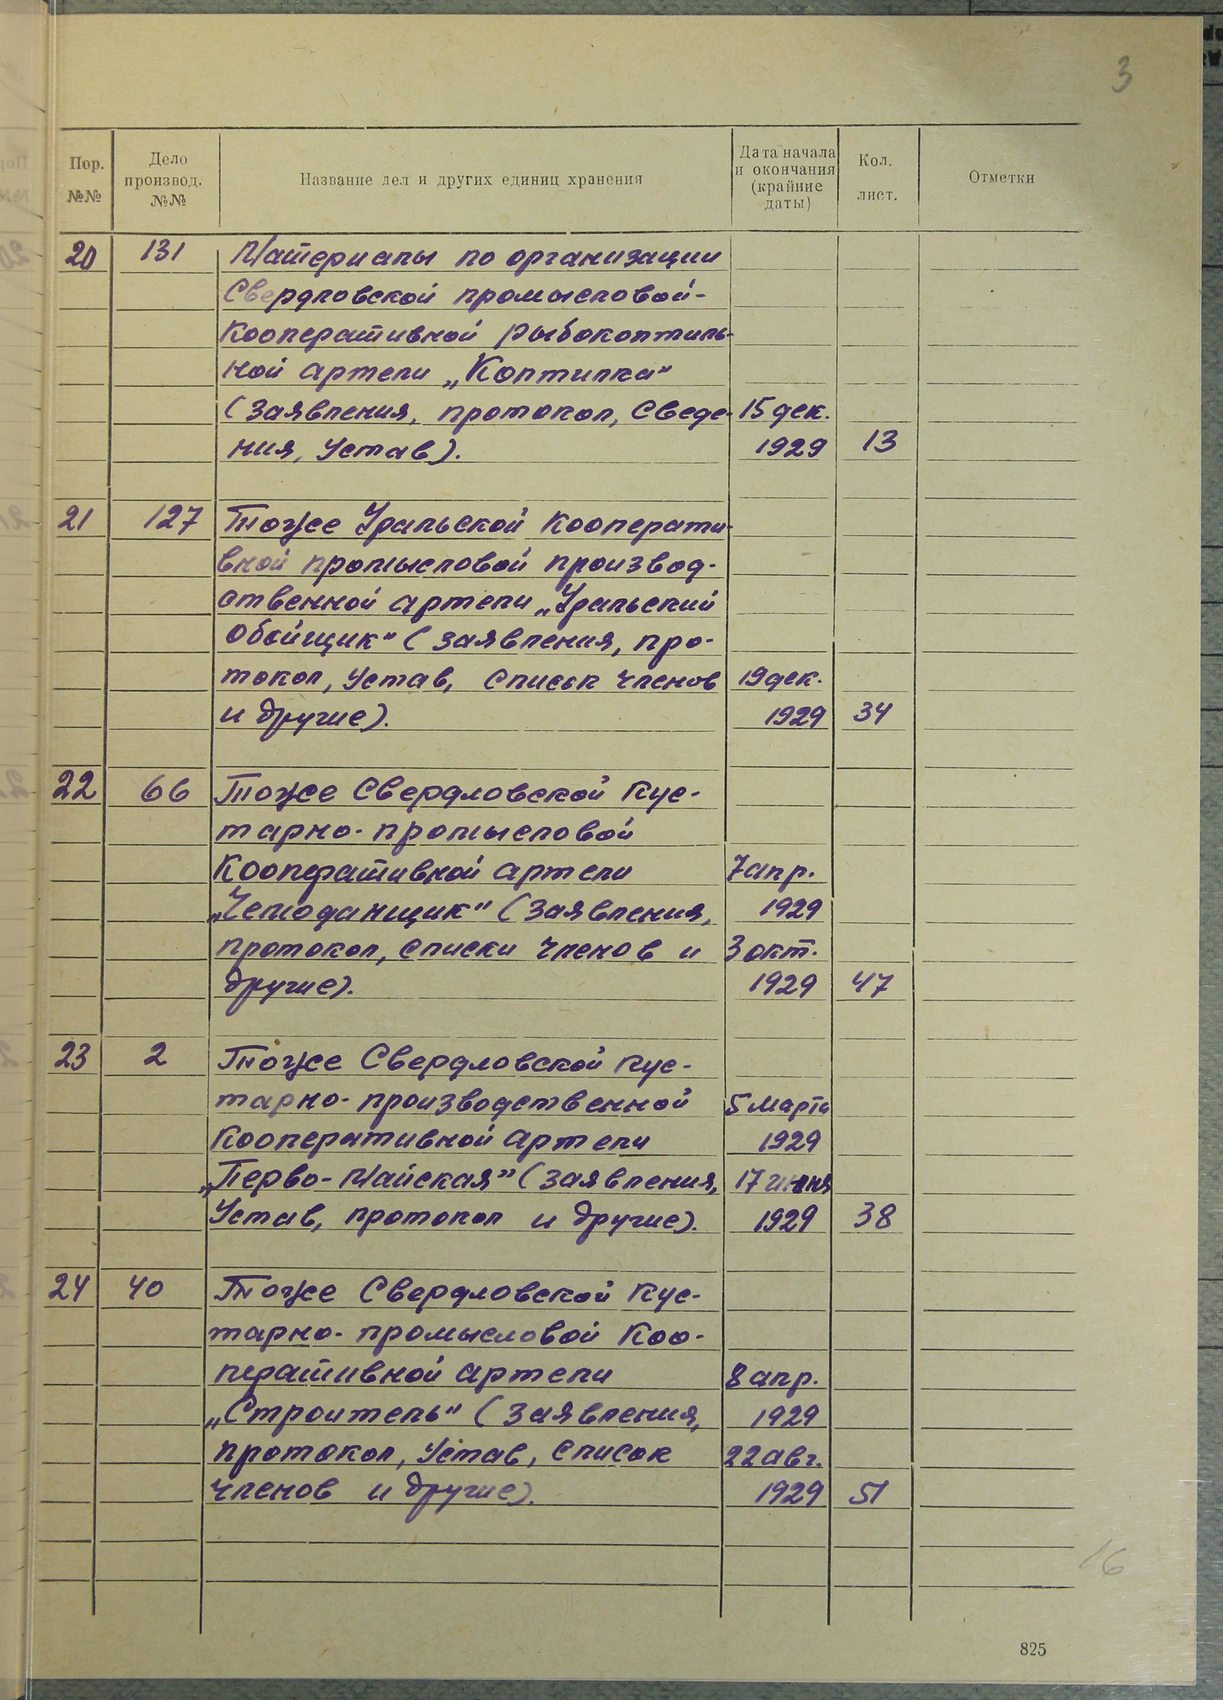 3
Пор. №№
Дело производ. №№
Название дел и других единиц хранения
Дата начала и окончания (крайние даты)
Кол. лист.
Отметки
20 131 Материалы по организации
Свердловской промысловой-
кооперативной рыбокоптиль-
ной артели „Коптилка"
(заявления, протокол, сведе- 15 дек.
ния, устав). 1929 13
21 127 Тоже Уральской кооперати-
вной промысловой производ-
ственной артели „Уральский
обойщик" (заявления, про-
токол, устав, список членов 19 дек.
и другие). 1929 34
22 66 Тоже Свердловской кус-
тарно-промысловой
кооперативной артели 7 апр.
„Чемоданщик" (заявления, 1929
протокол, списки членов и 3 окт.
другие). 1929 47
23 2 Тоже Свердловской кус-
тарно-производственной 5 марта
кооперативной артели 1929
„Перво-Майская" (заявления, 17 июня
Устав, протокол и другие). 1929 38
24 40 Тоже Свердловской кус-
тарно-промысловой коо-
перативной артели 8 апр.
„Строитель" (заявления, 1929
протокол, устав, список 22 авг.
членов и другие). 1929 51
16
825